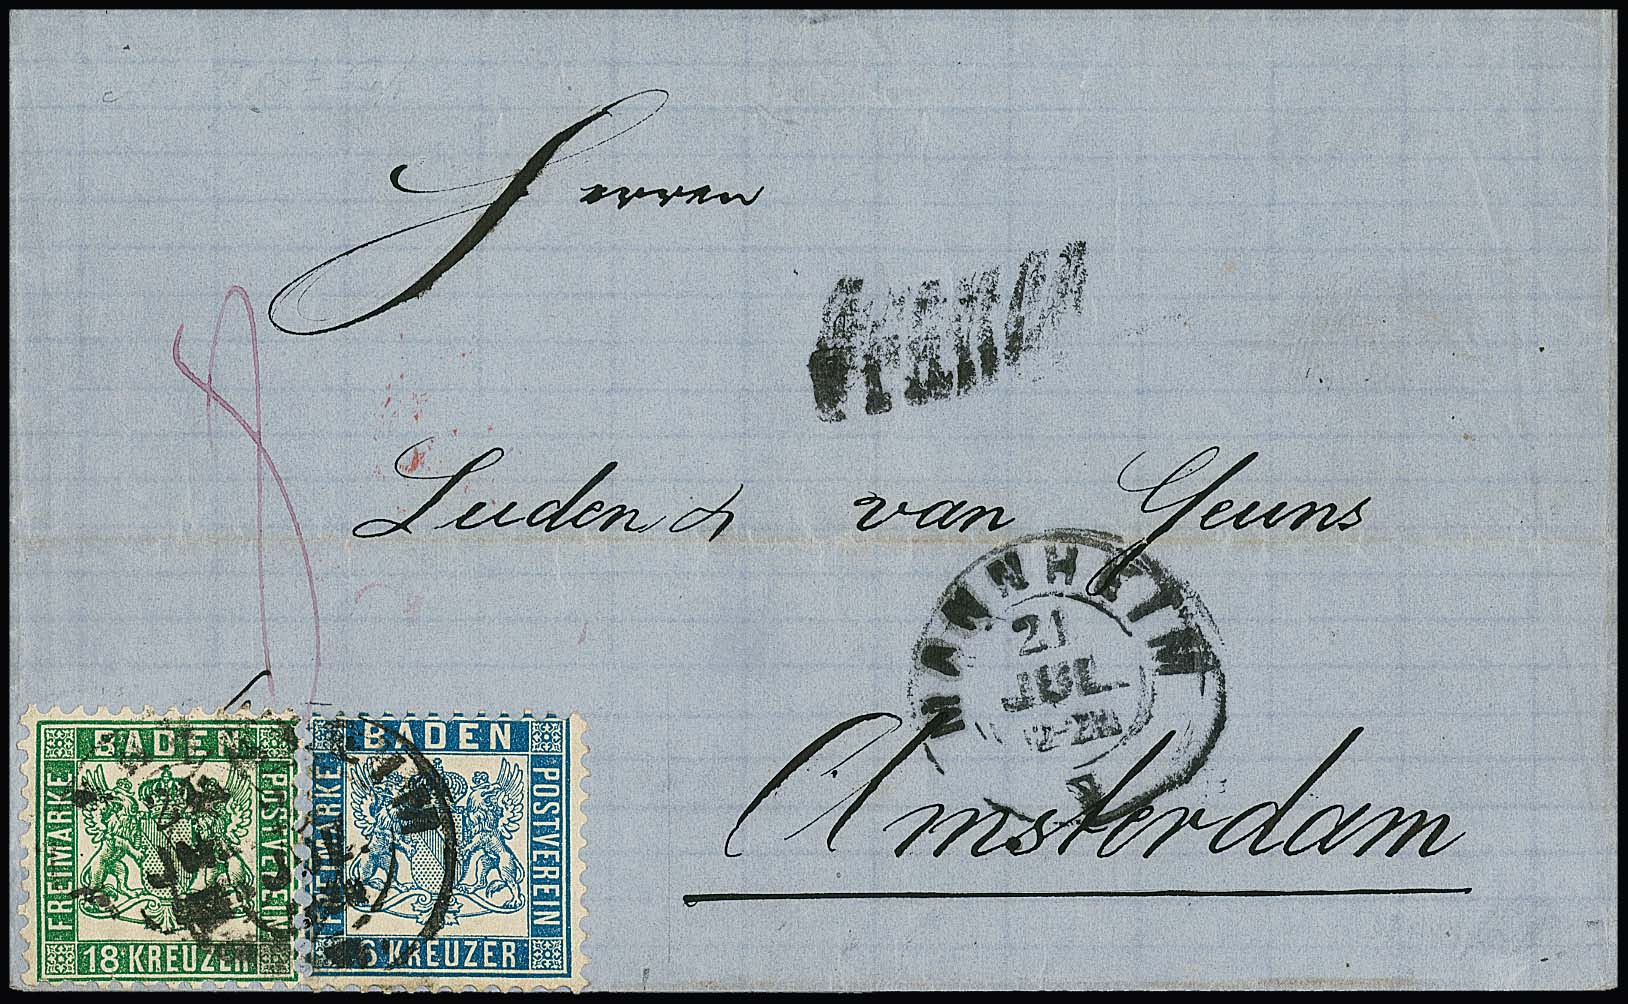 Herren
FRANCO
Luden & van Geuns
MANNHEIM
21
JUL
2-Z
Amsterdam
BADEN
FREIMARKE
POSTVEREIN
18 KREUZER
BADEN
FREIMARKE
POSTVEREIN
6 KREUZER